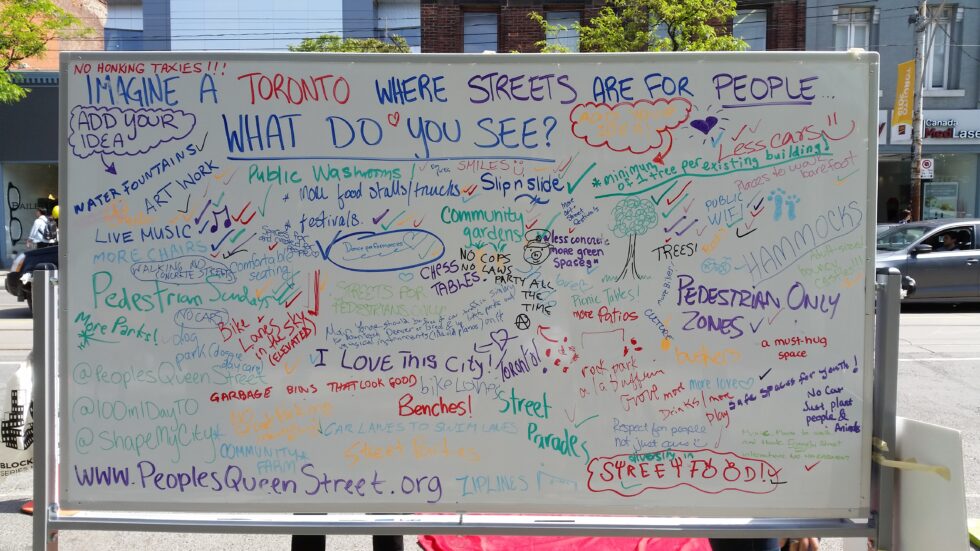 NO HONKING TAXIES!!!
IMAGINE A TORONTO WHERE STREETS ARE FOR PEOPLE...
ADD YOUR IDEA!
WHAT DO YOU SEE?
Less cars!!
WATER FOUNTAINS
ART WORK
Public Washrooms!
SMILES
* more food stalls/trucks
Slip n slide
*minimum of 1 tree per existing building!
Places to walk barefoot
LIVE MUSIC
* festivals
Community gardens!
PUBLIC WIFI
HAMMOCKS
MORE CHAIRS
WALKING AND CONCRETE STREETS
Comfortable seating
Dance performances
NO COPS
NO LAWS
PARTY ALL THE TIME
*less concrete
more green spases*
TREES!
CHESS TABLES
Pedestrian Sundays
STREETS FOR PEDESTRIANS ONLY
Picnic Tables!
more Patios
PEDESTRIAN ONLY ZONES
*More Parks!
NO CARS
dog park (doggie day care)
Bike Lanes in the sky (ELEVATED)
I LOVE THIS CITY!
Toronto!
buskers
- a must-hug space
@PeoplesQueenStreet
GARBAGE BINS THAT LOOK GOOD
bike Lanes
more love
Safe spaces for youth!
No Car
Just plant people & Animals
@100in1DayTO
Benches!
Street Parades
Drinks/more play
@ShapeMyCity
CAR LANES TO SWIM LANES
Respect for people
not just cars
COMMUNITY FARM
Street Parties
diversity in
STREET FOOD!
www.PeoplesQueenStreet.org
ZIPLINES
Canada
MedLaser